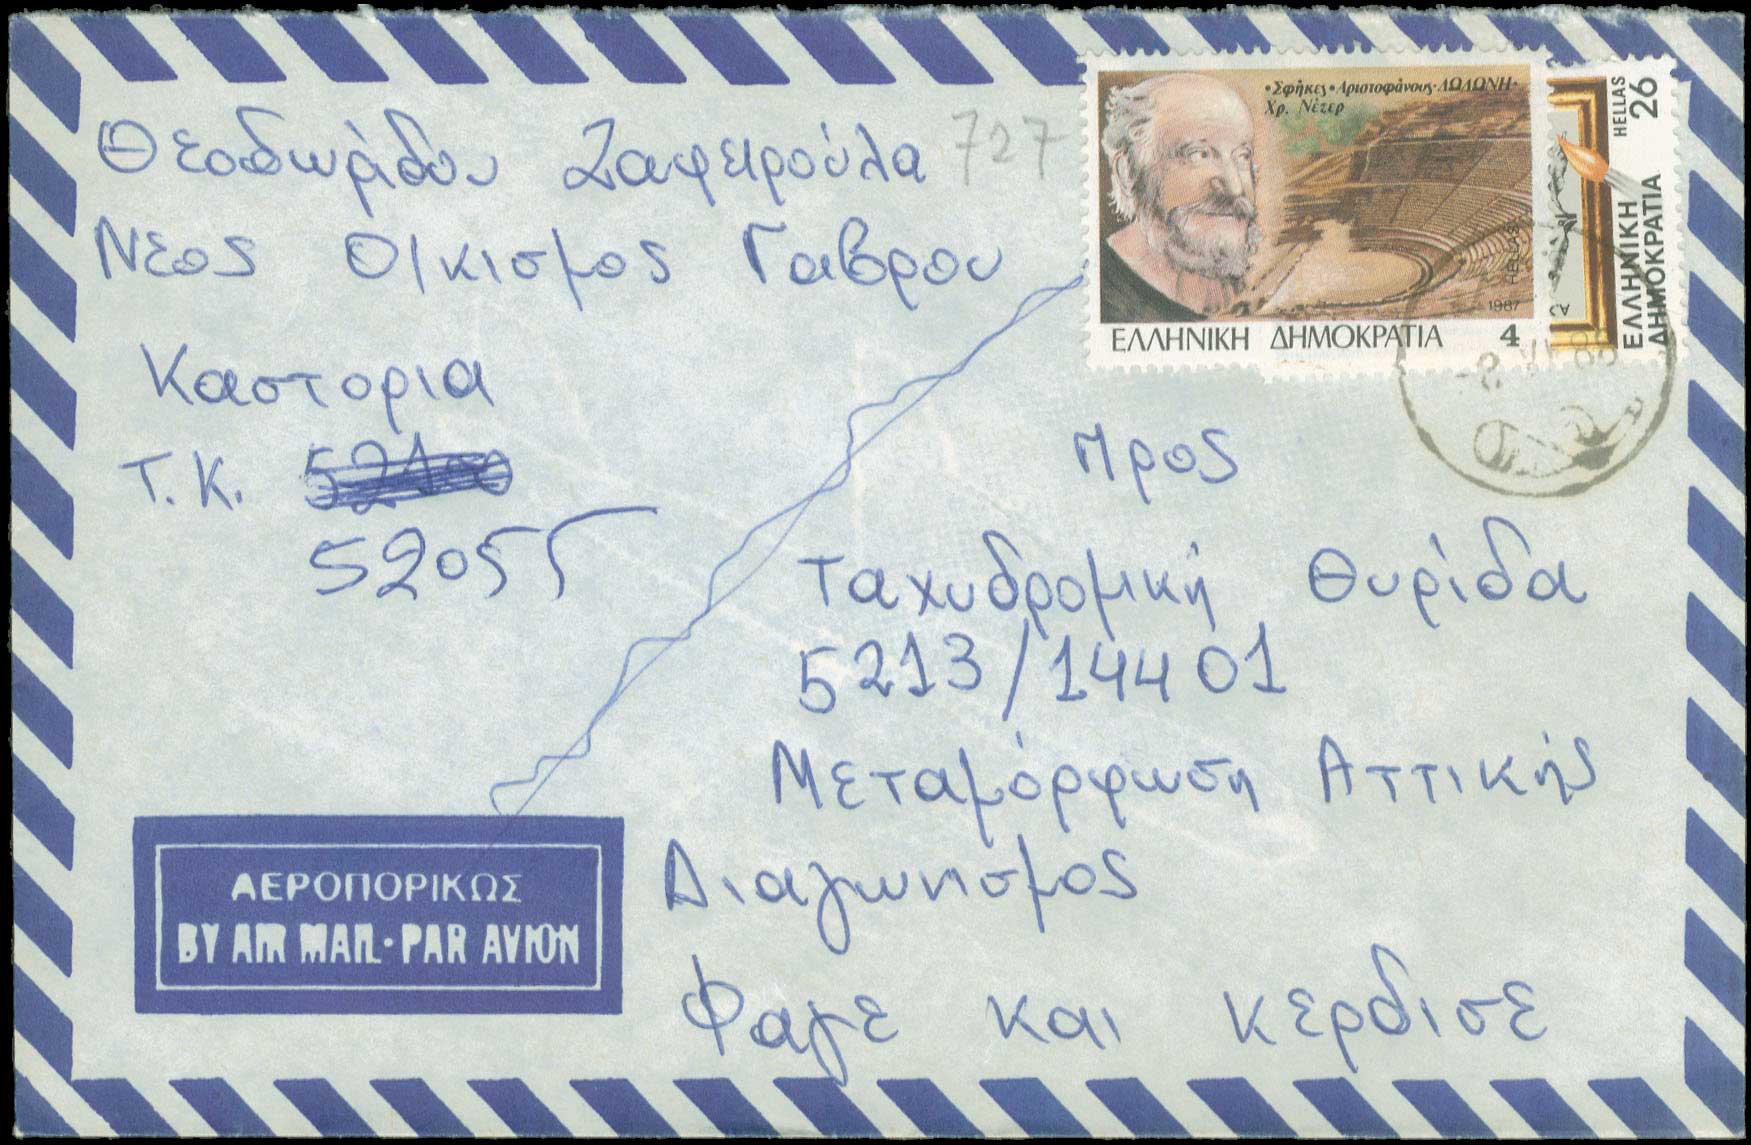 Θεοδωρίδου Ζαφειρούλα 727
Νέος Οικισμος Γαβρου
Καστορια
Τ.Κ. 52100
52055
•Σφῆκες•Ἀριστοφάνους•ΔΩΔΩΝΗ•
Χρ. Νέζερ
HELLAS
1987
ΕΛΛΗΝΙΚΗ ΔΗΜΟΚΡΑΤΙΑ 4
HELLAS 26
ΕΛΛΗΝΙΚΗ
ΔΗΜΟΚΡΑΤΙΑ
Προς
Ταχυδρομική Θυρίδα
5213/14401
Μεταμόρφωση Αττικής
Διαγωνισμος
Φαγε και κερδισε
ΑΕΡΟΠΟΡΙΚΩΣ
BY AIR MAIL•PAR AVION